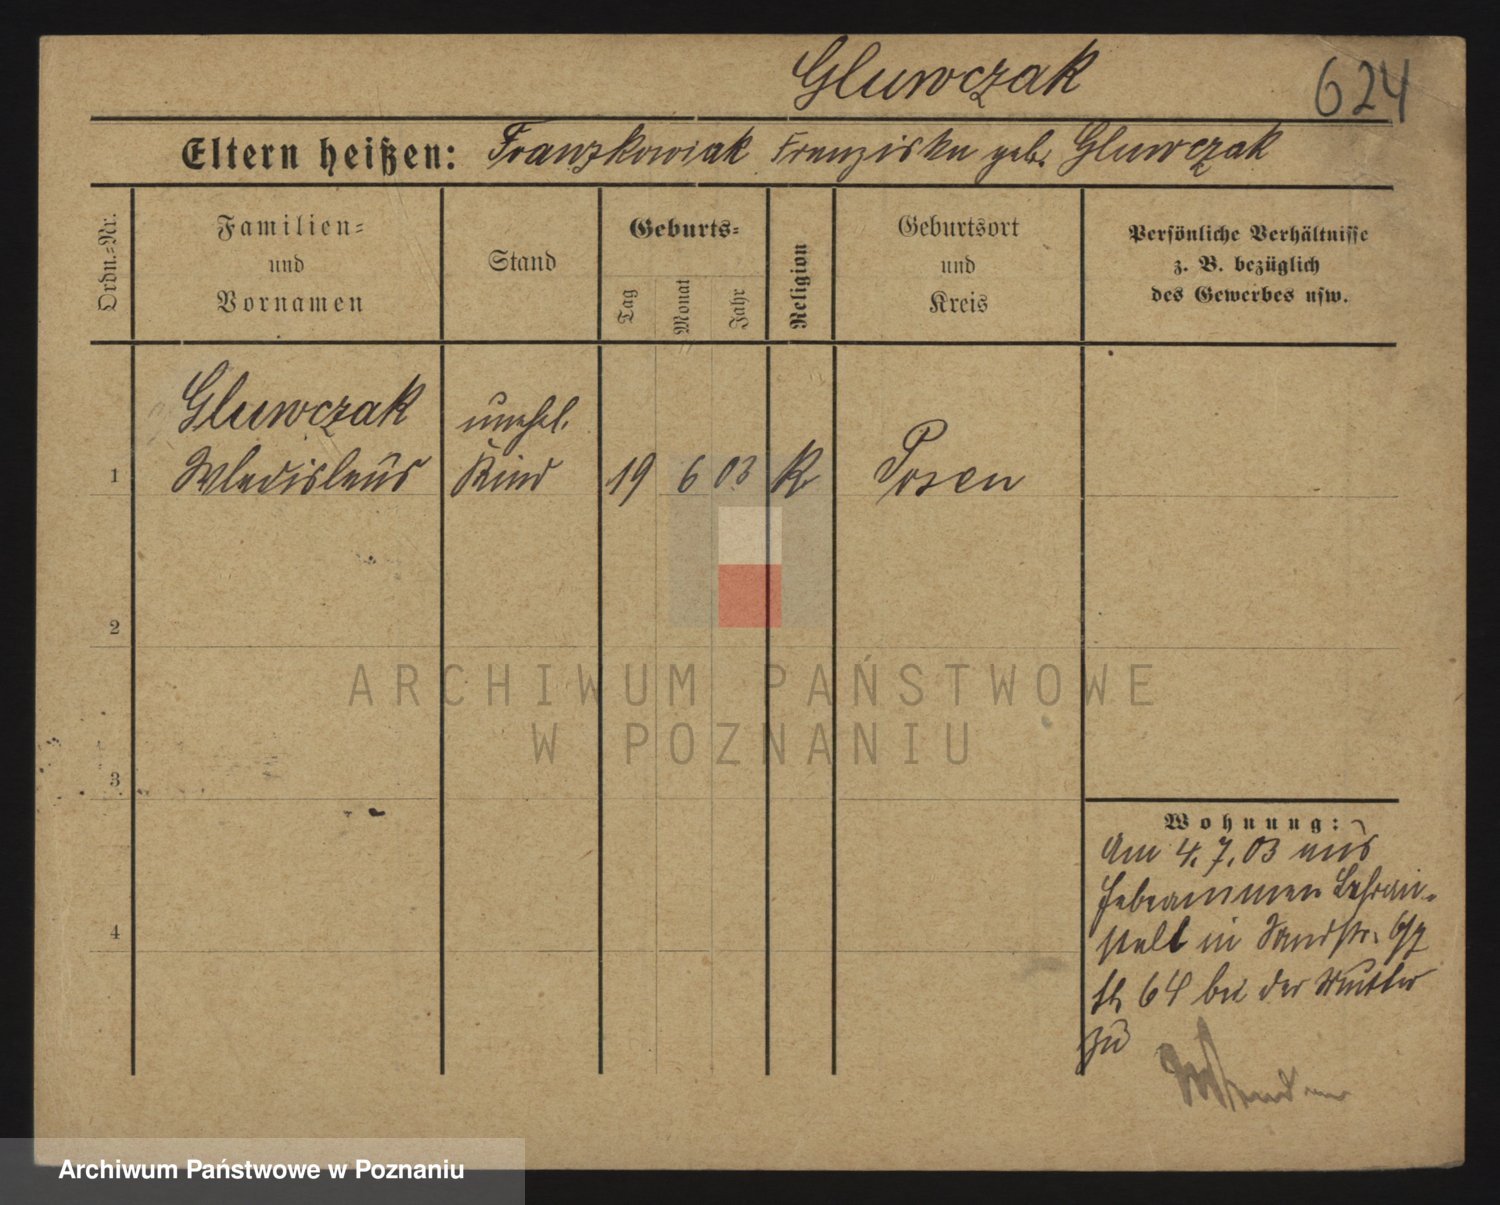 Gluwczak
624
Eltern heißen: Franzkowiak Franziska geb. Gluwczak
Ordn.-Nr.
Familien-
und
Vornamen
Stand
Geburts-
Tag
Monat
Jahr
Religion
Geburtsort
und
Kreis
Persönliche Verhältnisse
z. B. bezüglich
des Gewerbes usw.
1
Gluwczak
Wladislaus
unehel.
Kind
19
6
03
K
Posen
2
3
4
Wohnung:
Am 4.7.03 aus
Hebeammen Lehran-
stalt in Sandstr. 6/7
64 bei der Mutter
zu
ARCHIWUM PAŃSTWOWE
W POZNANIU
Archiwum Państwowe w Poznaniu